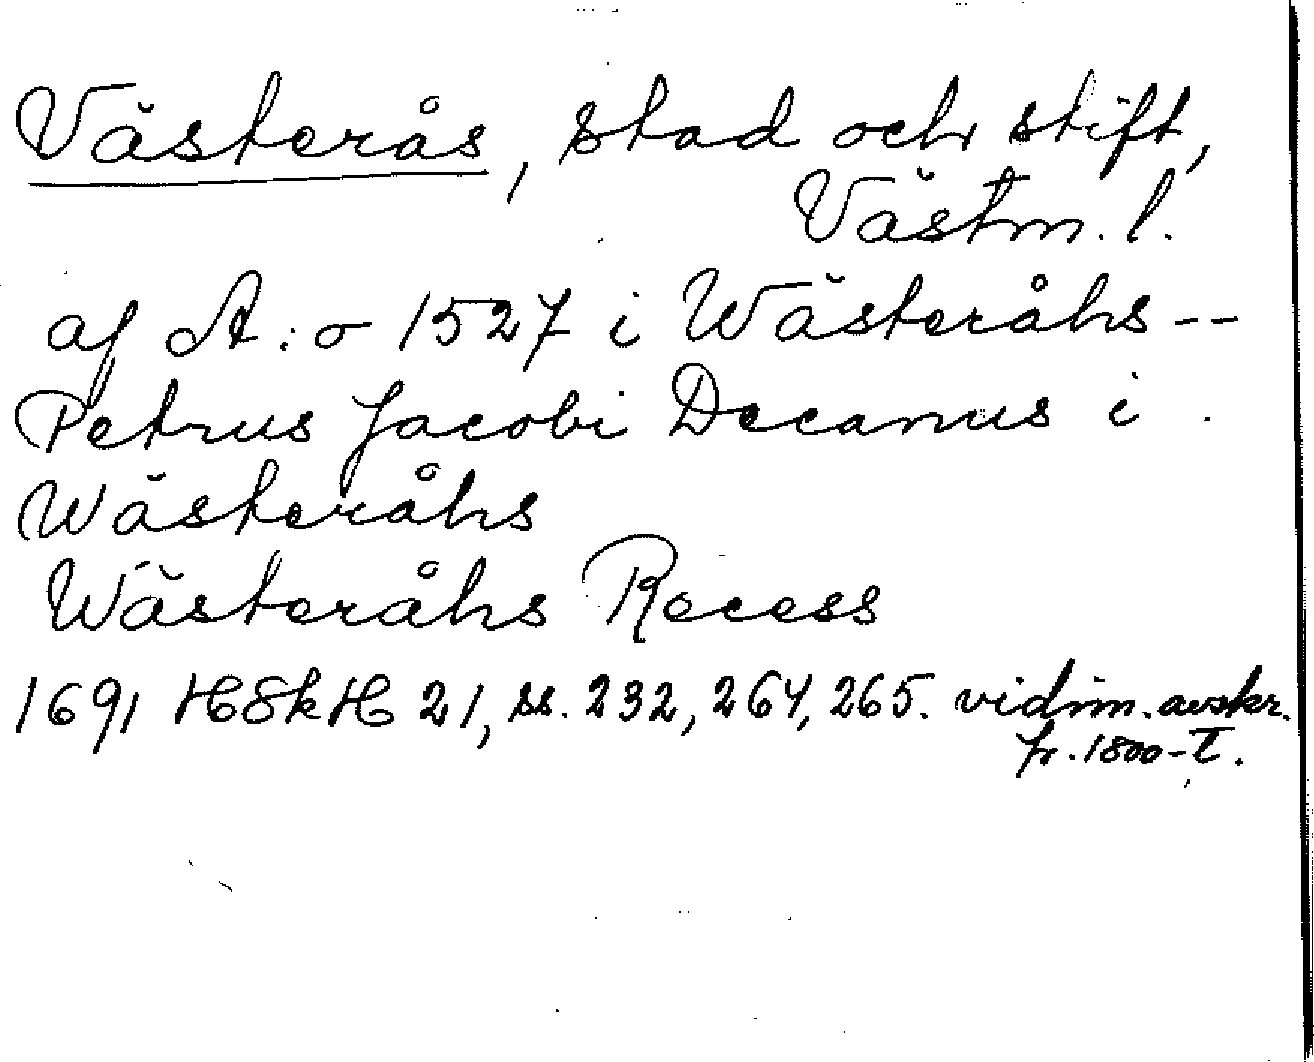 Västerås, stad och stift,
Västm. l.
af A:o 1527 i Wästeråhs--
Petrus Jacobi Decanus i
Wästeråhs
Wästeråhs Recess
1691 HSkH 21, ss. 232, 264, 265. vidim. avskr.
fr. 1800-t.